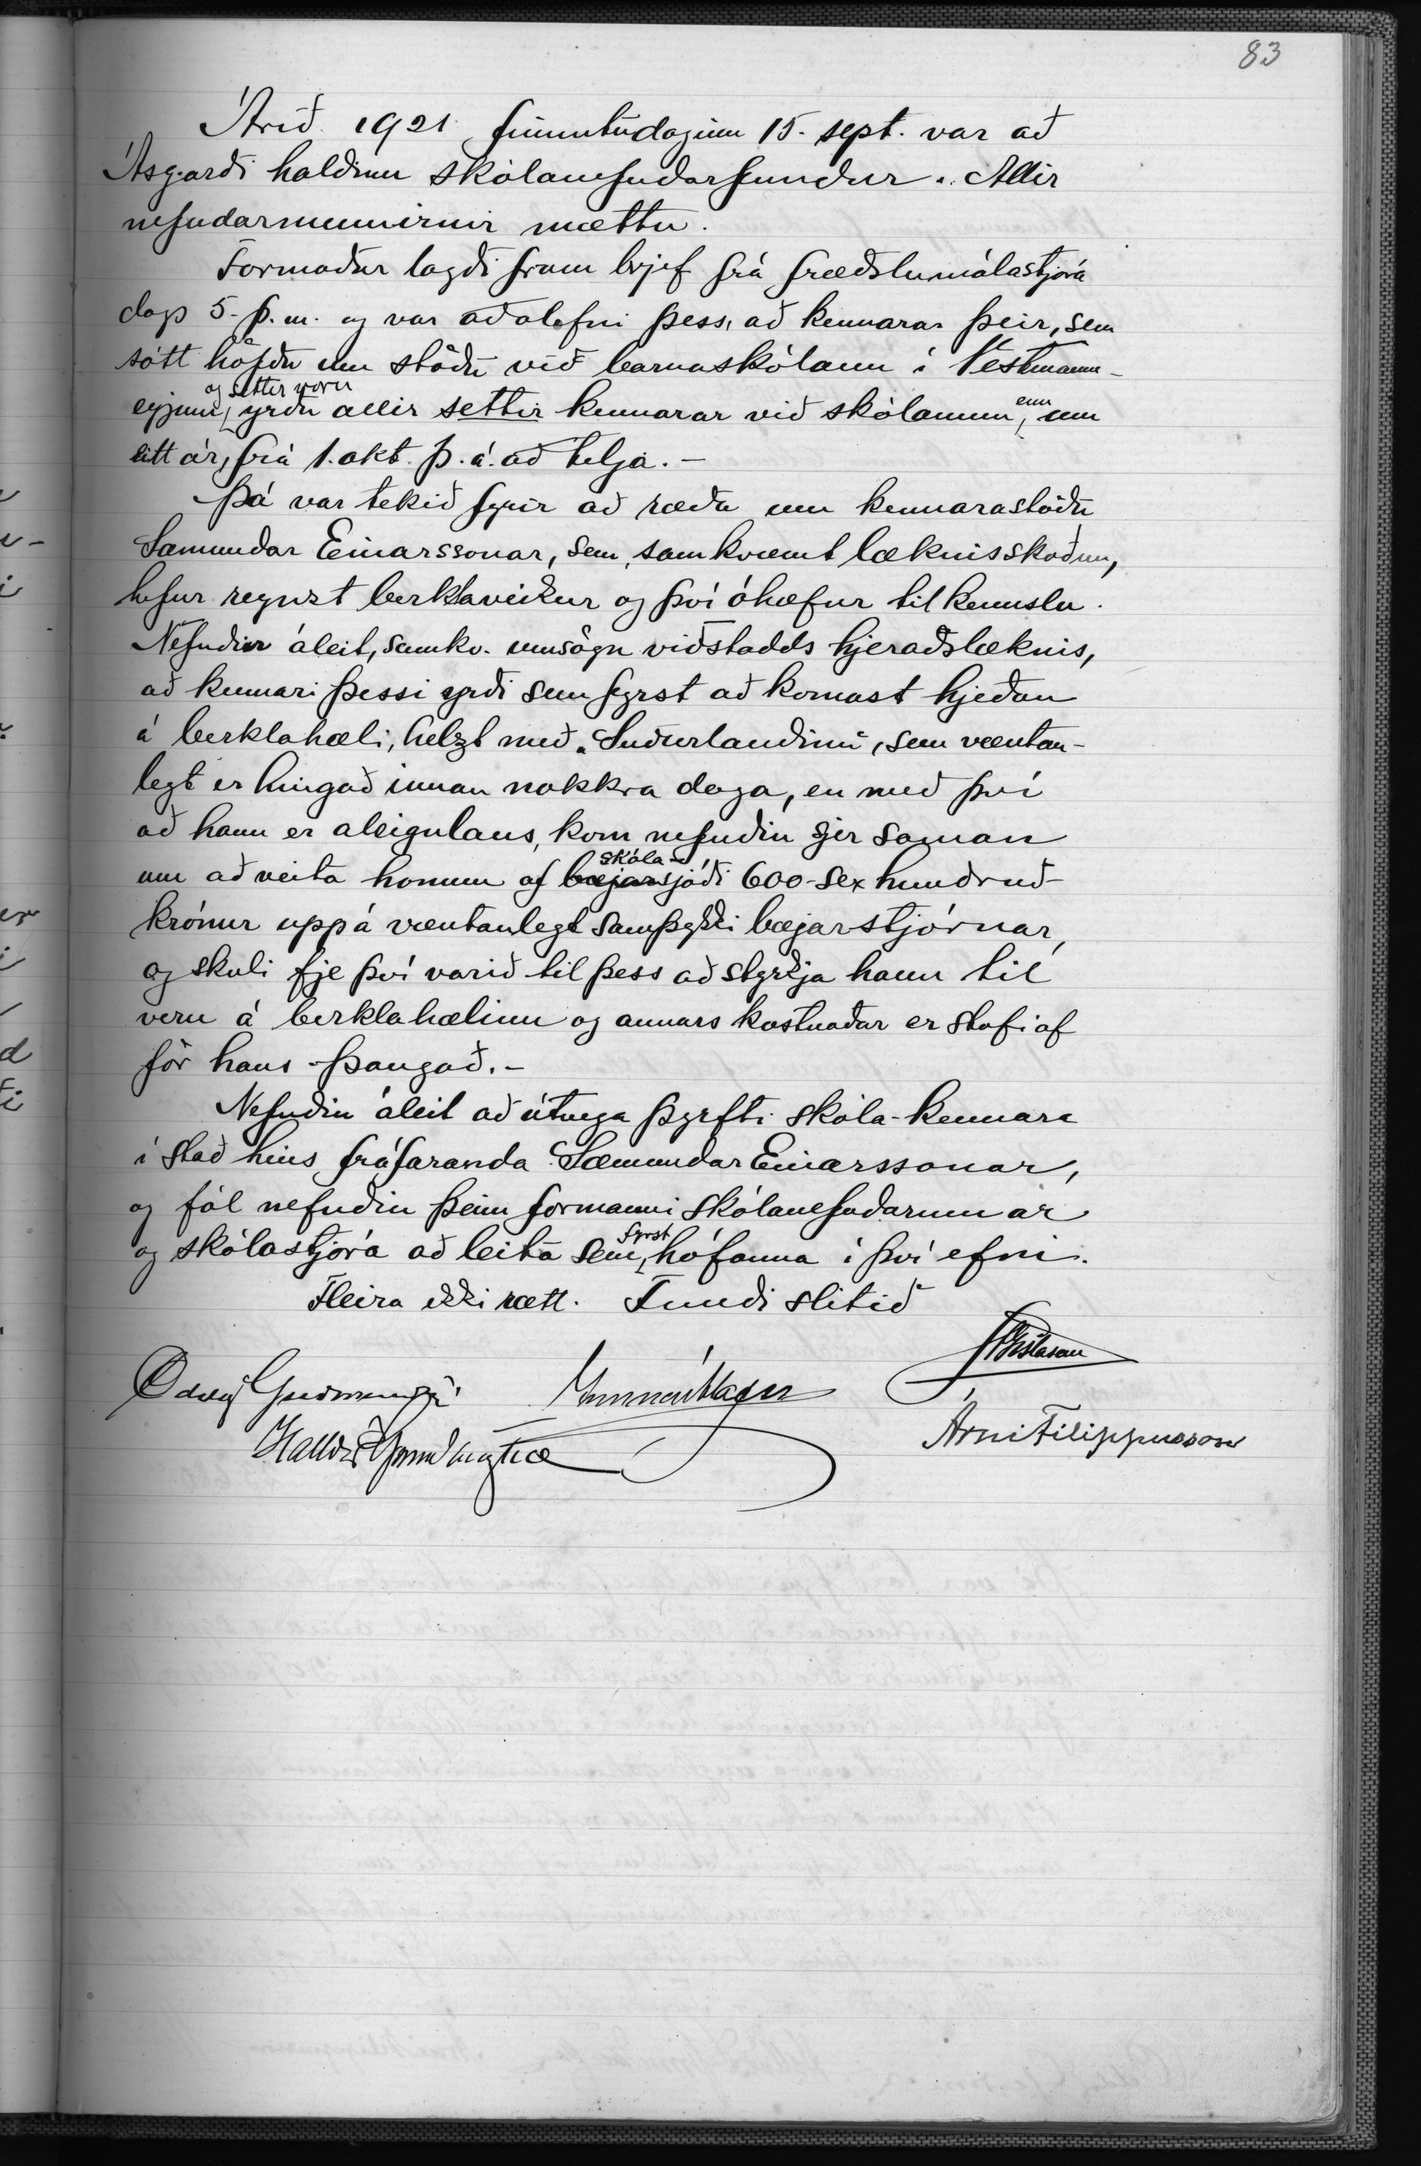 83
Árið 1921 fimmtudaginn 15. sept. var að
Ásgarði haldinn skólanefndarfundur. Allir
nefndarmennirnir mættu.
Formaður lagði fram brjef frá fræðslumálastjóra
dags 5. þ.m. og var aðalefni þess, að kennarar þeir, sem
sótt höfðu um stöðu við barnaskólann í Vestmann-
og settir voru
eyjum, yrðu allir settir kennarar við skólann enn, um
eitt ár, frá 1. okt. þ.á. að telja. -
Þá var tekið fyrir að ræða um kennarastöðu
Sæmundar Einarssonar, sem, samkvæmt læknisskoðun,
hefur reynzt berklaveikur og því óhæfur til kennslu.
Nefndin áleit, samkv. umsögn viðstadds hjeraðslæknis,
að kennari þessi yrði sem fyrst að komast hjeðan
á berklahæli, helzt með "Suðurlandinu", sem væntan-
legt er hingað innan nokkra daga, en með því
að hann er aleigulaus, kom nefndin sjer saman
skóla-
um að veita honum af bæjarsjóði 600 - sex hundruð -
krónur uppá væntanlegt samþykki bæjarstjórnar,
og skuli fje því varið til þess að styrkja hann til
veru á berklahælinu og annars kostnaðar er stafi af
för hans þangað. -
Nefndin áleit að útvega þyrfti skóla-kennara
í stað hins fráfaranda Sæmundar Einarssonar,
og fól nefndin þeim formanni skólanefndarinnar
og skólastjóra að leita sem fyrst hófanna í því efni.
Fleira ekki rætt. Fundi slitið
Gíslason
Gunnar Ólafsson
Árni Filippusson
Halldór Gunnlaugsson